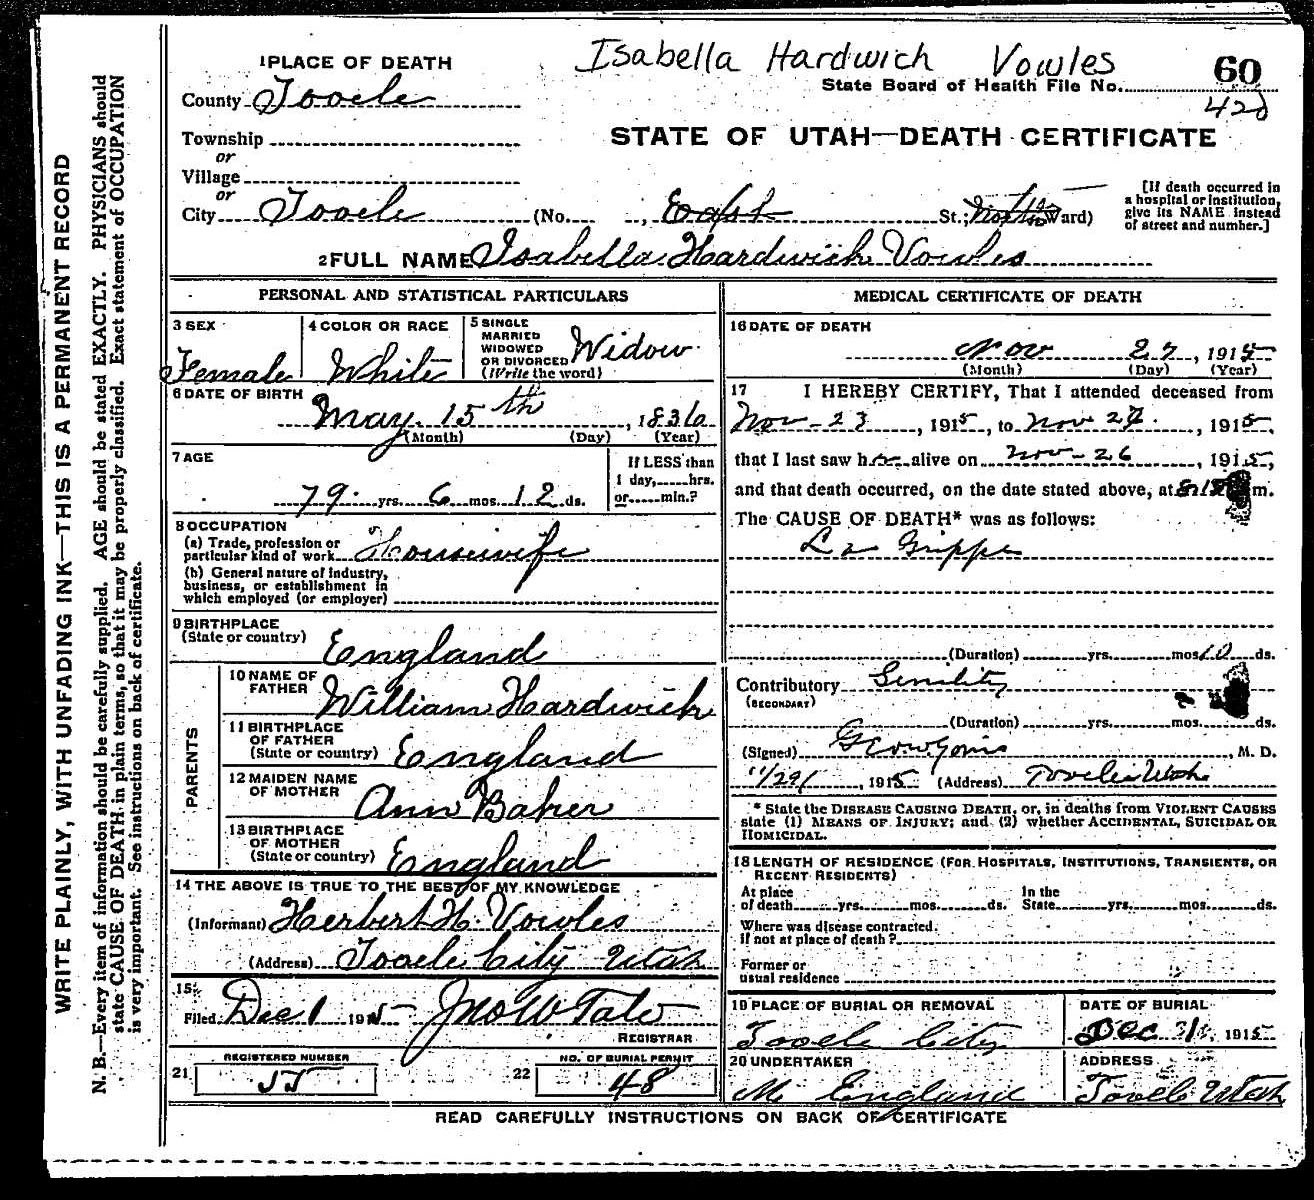 Isabella Hardwich Vowles
60
State Board of Health File No.
420
1 PLACE OF DEATH
County Tooele
STATE OF UTAH—DEATH CERTIFICATE
Township
or
Village
or
City Tooele (No. , East St.; Ward)
[If death occurred in a hospital or institution, give its NAME instead of street and number.]
2 FULL NAME Isabella Hardwich Vowles
PERSONAL AND STATISTICAL PARTICULARS
3 SEX
Female
4 COLOR OR RACE
White
5 SINGLE
MARRIED
WIDOWED
OR DIVORCED
(Write the word)
Widow
6 DATE OF BIRTH
May 15th, 1836
(Month) (Day) (Year)
7 AGE
79 yrs. 6 mos. 12 ds.
If LESS than
1 day, hrs.
or min.?
8 OCCUPATION
(a) Trade, profession or
particular kind of work Housewife
(b) General nature of industry,
business, or establishment in
which employed (or employer)
9 BIRTHPLACE
(State or country) England
PARENTS
10 NAME OF
FATHER William Hardwich
11 BIRTHPLACE
OF FATHER
(State or country) England
12 MAIDEN NAME
OF MOTHER Ann Baker
13 BIRTHPLACE
OF MOTHER
(State or country) England
14 THE ABOVE IS TRUE TO THE BEST OF MY KNOWLEDGE
(Informant) Herbert H. Vowles
(Address) Tooele City Utah
15
Filed Dec 1 1915 Jno W Tate
REGISTRAR
REGISTERED NUMBER
21 55
NO. OF BURIAL PERMIT
22 48
MEDICAL CERTIFICATE OF DEATH
16 DATE OF DEATH
Nov 27, 1915
(Month) (Day) (Year)
17 I HEREBY CERTIFY, That I attended deceased from
Nov - 23, 1915, to Nov 27, 1915,
that I last saw her alive on Nov - 26, 1915,
and that death occurred, on the date stated above, at m.
The CAUSE OF DEATH* was as follows:
La Grippe
(Duration) yrs. mos. 10 ds.
Contributory Senility
(SECONDARY)
(Duration) yrs. mos. ds.
(Signed) , M. D.
11/29/ 1915 (Address) Tooele Utah
* State the DISEASE CAUSING DEATH, or, in deaths from VIOLENT CAUSES
state (1) MEANS OF INJURY; and (2) whether ACCIDENTAL, SUICIDAL OR
HOMICIDAL.
18 LENGTH OF RESIDENCE (FOR HOSPITALS, INSTITUTIONS, TRANSIENTS, OR
RECENT RESIDENTS)
At place
of death yrs. mos. ds.
In the
State yrs. mos. ds.
Where was disease contracted.
if not at place of death?
Former or
usual residence
19 PLACE OF BURIAL OR REMOVAL
Tooele City
DATE OF BURIAL
Dec 1, 1915
20 UNDERTAKER
M England
ADDRESS
Tooele Utah
READ CAREFULLY INSTRUCTIONS ON BACK OF CERTIFICATE
WRITE PLAINLY, WITH UNFADING INK—THIS IS A PERMANENT RECORD
N. B.—Every item of information should be carefully supplied. AGE should be stated EXACTLY. PHYSICIANS should
state CAUSE OF DEATH in plain terms, so that it may be properly classified. Exact statement of OCCUPATION
is very important. See instructions on back of certificate.